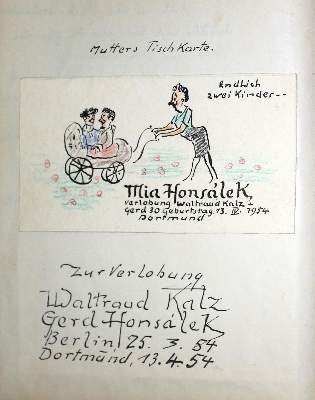 Mutters Tischkarte.
Endlich
zwei Kinder--
Mia Honsálek,
Verlobung Waltraud Kalz +
Gerd 30 Geburtstag 13. IV. 1954
Dortmund
Zur Verlobung
Waltraud Kalz
Gerd Honsálek,
Berlin, 25. 3. 54
Dortmund, 13.4.54